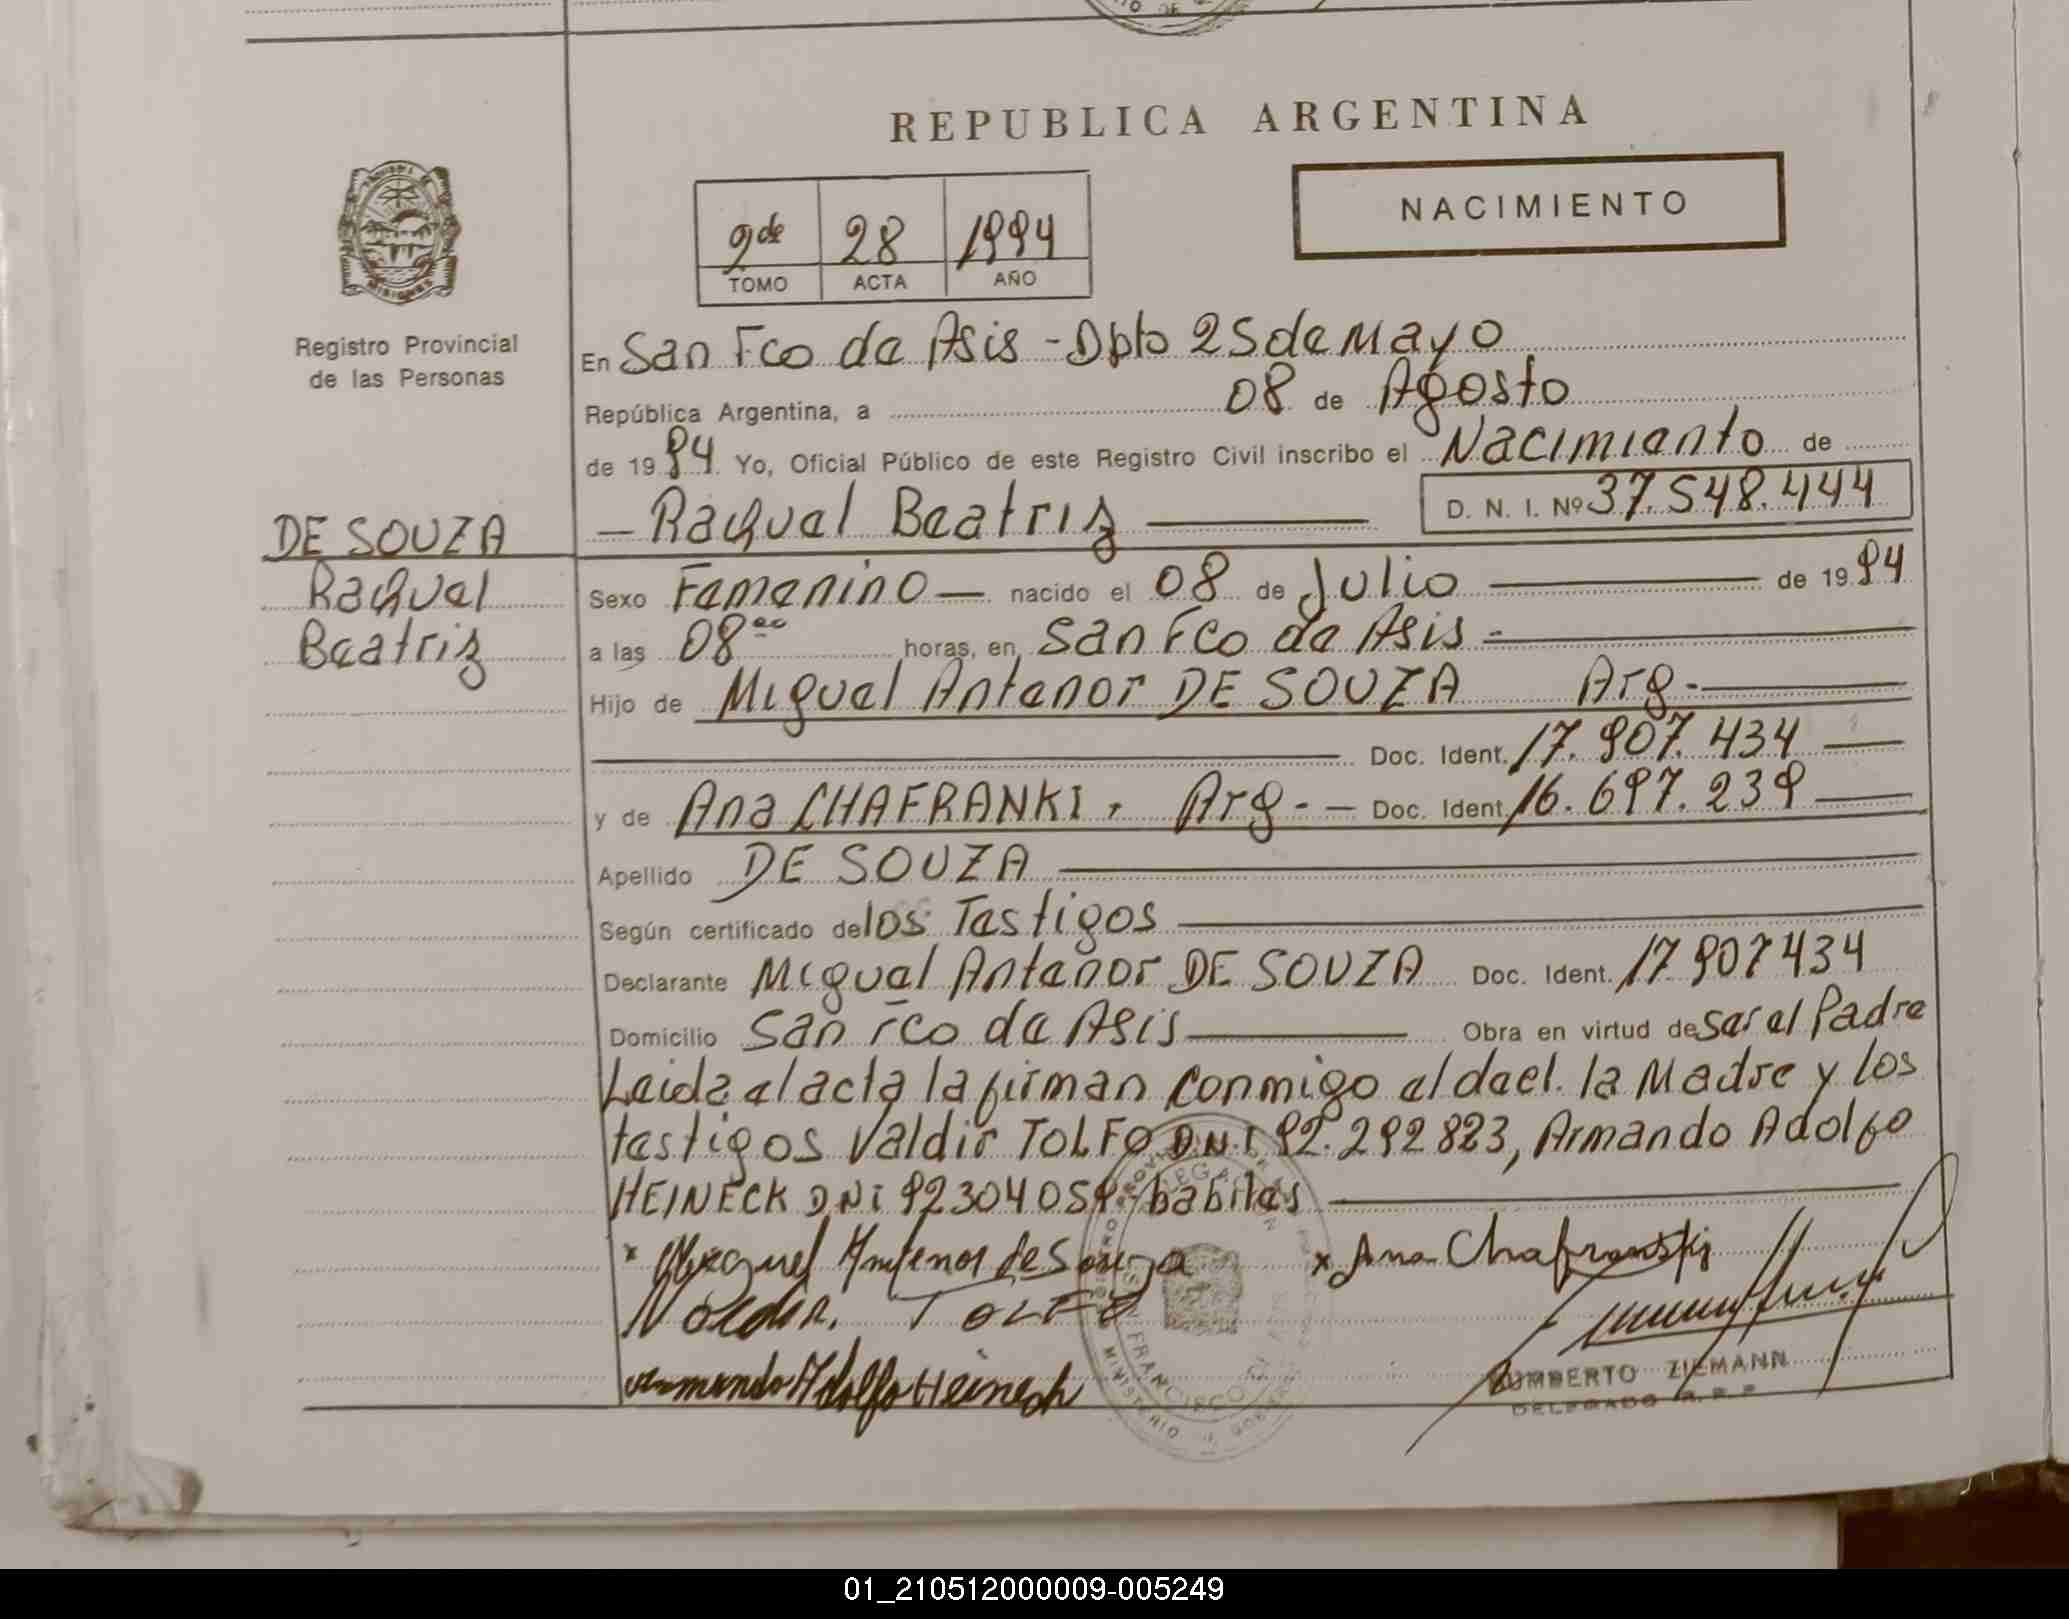 REPUBLICA ARGENTINA
NACIMIENTO
2de 28 1994
TOMO ACTA AÑO
MISIONES
Registro Provincial
de las Personas
En San Fco de Asis - Dpto 25 de Mayo
República Argentina, a 08 de Agosto
de 1994 Yo, Oficial Público de este Registro Civil inscribo el Nacimiento de
— Raquel Beatriz — D. N. I. Nº 37.548.444
DE SOUZA
Raquel
Beatriz
Sexo Femenino — nacido el 08 de Julio — de 1994
a las 08 oo horas, en San Fco de Asis -
Hijo de Miguel Antenor DE SOUZA Arg.-
Doc. Ident. 17.907.434 —
y de Ana CHAFRANKI, Arg. - — Doc. Ident. 16.697.239 —
Apellido DE SOUZA —
Según certificado de los Testigos —
Declarante Miguel Antenor DE SOUZA Doc. Ident. 17907434
Domicilio San Fco de Asis — Obra en virtud de ser el Padre
Leida el acta la firman conmigo el decl. la Madre y los
testigos Valdir TOLFO D.N.I 92.292823, Armando Adolfo
HEINECK DNI 92304059, habiles —
x Miguel Antenor de Souza x Ana Chafranski
TOLFO
Armando Adolfo Heineck
HUMBERTO ZIEMANN
DELEGADO R.P.P.
MINISTERIO
01_210512000009-005249